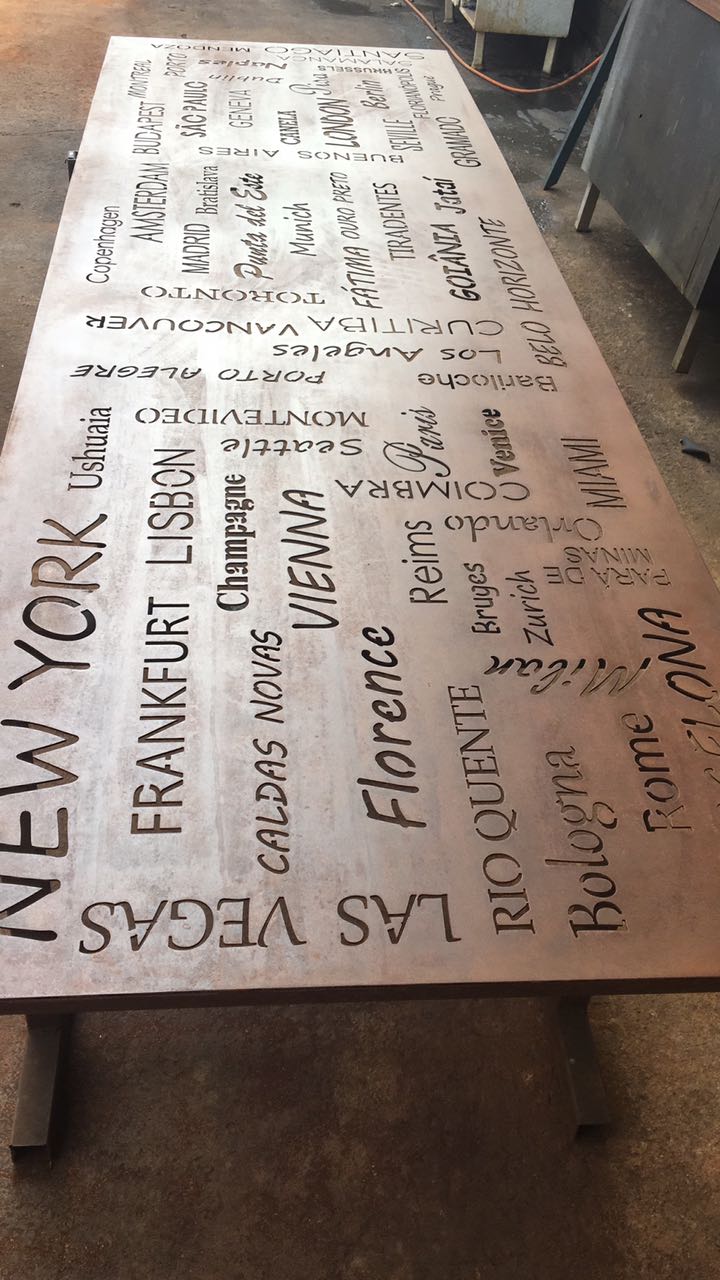 SANTIAGO MENDOZA
SALAMANCA
MONTREAL
PORTO
Naples
Dublin
BRUSSELS
BUDAPEST
SÃO PAULO
GENEVA
CANELA
LONDON
Berlin
SEVILLE
FLORIANÓPOLIS
Prague
BUENOS AIRES
GRAMADO
AMSTERDAM
Bratislava
Copenhagen
MADRID
Punta del Este
Munich
OURO PRETO
FÁTIMA
TIRADENTES
GOIÂNIA
Jataí
TORONTO
BELO HORIZONTE
CURITIBA
VANCOUVER
Los Angeles
PORTO ALEGRE
Bariloche
Ushuaia
MONTEVIDEO
Seattle
Paris
Venice
MIAMI
LISBON
Champagne
COIMBRA
VIENNA
Reims
Orlando
PARÁ DE
MINAS
Bruges
Zurich
NEW YORK
FRANKFURT
CALDAS NOVAS
Florence
Milan
RIO QUENTE
Bologna
Rome
ELONA
LAS VEGAS